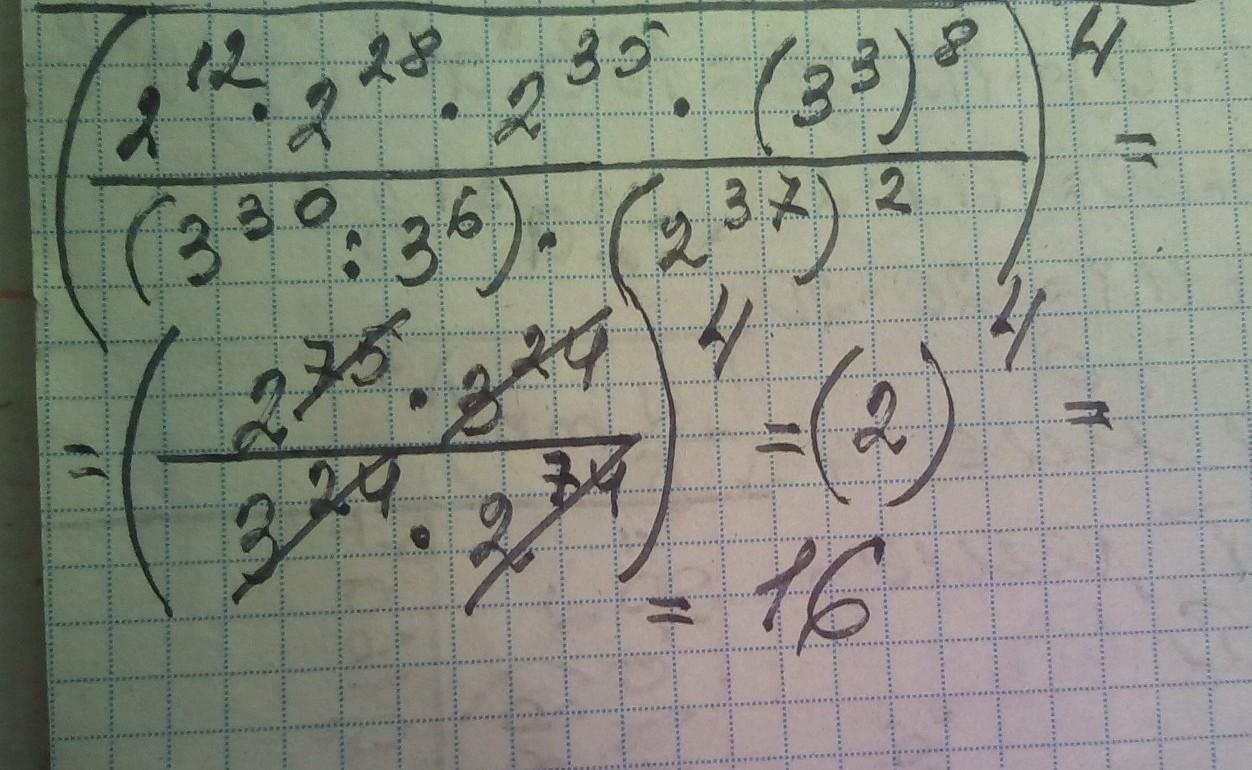 (2^12 · 2^28 · 2^35 · (3^3)^8 / (3^30 : 3^6) · (2^37)^2)^4 =
= (2^75 · 3^24 / 3^24 · 2^74)^4 = (2)^4 =
= 16